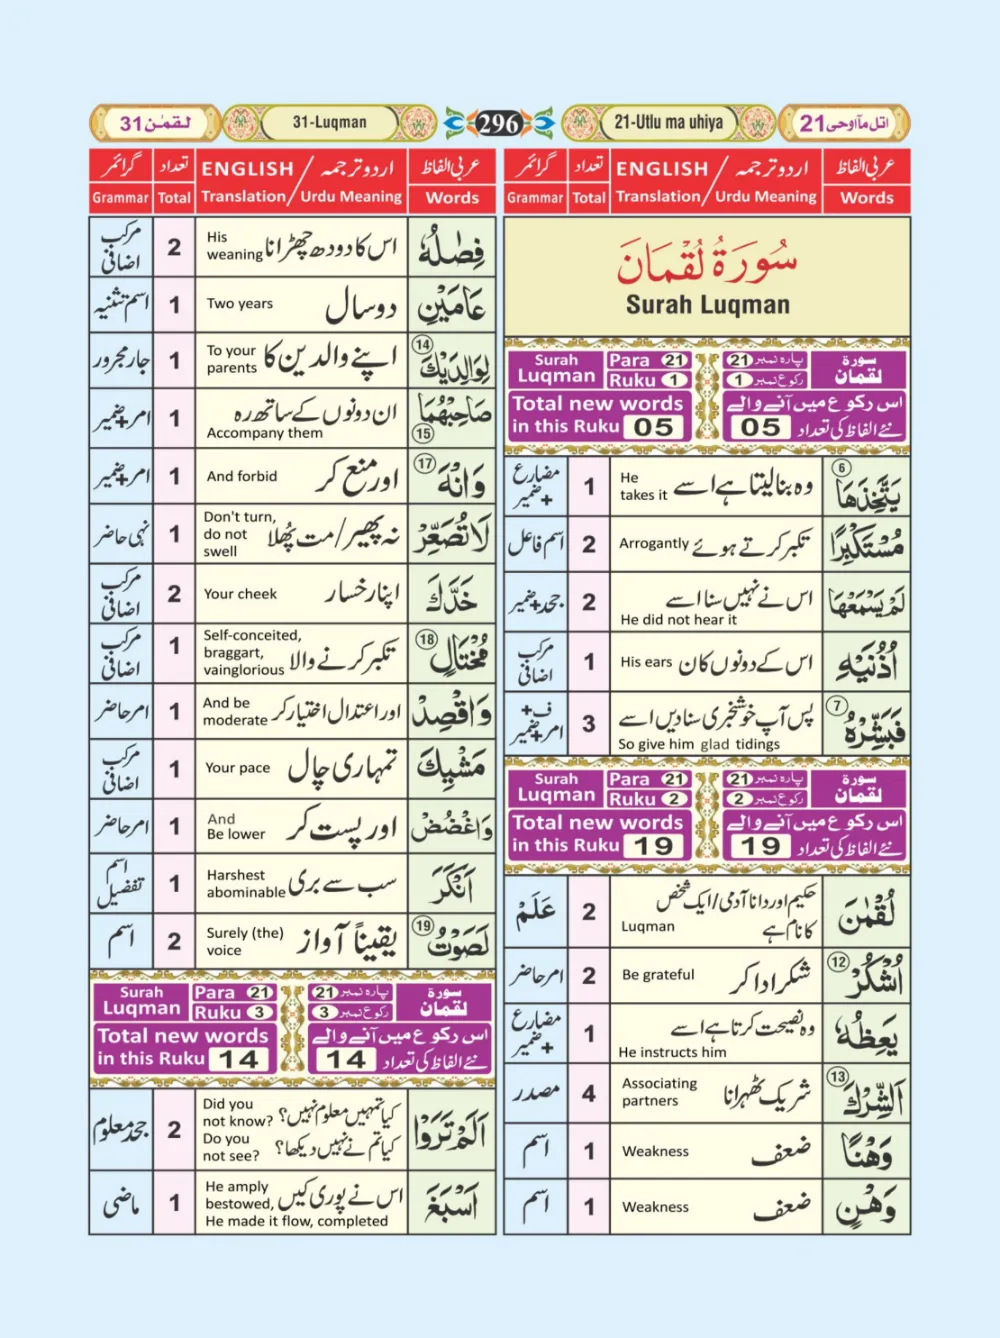 لقمٰن 31
31-Luqman
296
21-Utlu ma uhiya
اتل مآ اوحی 21
عربی الفاظ اردو ترجمہ / ENGLISH تعداد گرائمر
Words Urdu Meaning / Translation Total Grammar
سُورَةُ لُقْمَانَ
Surah Luqman
سورۃ لقمان پارہ نمبر 21 Para 21 Surah Luqman
رکوع نمبر 1 Ruku 1
اس رکوع میں آنے والے Total new words
نئے الفاظ کی تعداد 05 in this Ruku 05
يَتَّخِذَهَا 6 وہ بنا لیتا ہے اسے He takes it 1 مضارع + ضمیر
مُسْتَكْبِرًا تکبر کرتے ہوئے Arrogantly 2 اسم فاعل
لَمْ يَسْمَعْهَا اس نے نہیں سنا اسے He did not hear it 2 جحد+ضمیر
اُذُنَيْهِ اس کے دونوں کان His ears 1 مرکب اضافی
فَبَشِّرْهُ 7 پس آپ خوشخبری سنا دیں اسے So give him glad tidings 3 ف+ امر+ضمیر
سورۃ لقمان پارہ نمبر 21 Para 21 Surah Luqman
رکوع نمبر 2 Ruku 2
اس رکوع میں آنے والے Total new words
نئے الفاظ کی تعداد 19 in this Ruku 19
لُقْمٰنَ حکیم اور دانا آدمی/ایک شخص کا نام ہے Luqman 2 عَلَم
اُشْكُرْ 12 شکر ادا کر Be grateful 2 امر حاضر
يَعِظُهٗ وہ نصیحت کرتا ہے اسے He instructs him 1 مضارع + ضمیر
اَلشِّرْكَ 13 شریک ٹھہرانا Associating partners 4 مصدر
وَهْنًا ضعف Weakness 1 اسم
وَهْنٍ ضعف Weakness 1 اسم
عربی الفاظ اردو ترجمہ / ENGLISH تعداد گرائمر
Words Urdu Meaning / Translation Total Grammar
فِصٰلُهٗ اس کا دودھ چھڑانا His weaning 2 مرکب اضافی
عَامَيْنِ دو سال Two years 1 اسم تثنیہ
لِوَالِدَيْكَ 14 اپنے والدین کا To your parents 1 جار مجرور
صَاحِبْهُمَا 15 ان دونوں کے ساتھ رہ Accompany them 1 امر+ضمیر
وَانْهَ 17 اور منع کر And forbid 1 امر+ضمیر
لَا تُصَعِّرْ نہ پھیر/مت پُھلا Don't turn, do not swell 1 نہی حاضر
خَدَّكَ اپنا رخسار Your cheek 2 مرکب اضافی
مُخْتَالٍ 18 تکبر کرنے والا Self-conceited, braggart, vainglorious 1 مرکب اضافی
وَاقْصِدْ اور اعتدال اختیار کر And be moderate 1 امر حاضر
مَشْيِكَ تمہاری چال Your pace 1 مرکب اضافی
وَاغْضُضْ اور پست کر And Be lower 1 امر حاضر
اَنْكَرَ سب سے بری Harshest abominable 1 اسم تفضیل
لَصَوْتُ 19 یقیناً آواز Surely (the) voice 2 اسم
سورۃ لقمان پارہ نمبر 21 Para 21 Surah Luqman
رکوع نمبر 3 Ruku 3
اس رکوع میں آنے والے Total new words
نئے الفاظ کی تعداد 14 in this Ruku 14
اَلَمْ تَرَوْا کیا تمہیں معلوم نہیں؟ کیا تم نے نہیں دیکھا؟ Did you not know? Do you not see? 2 جحد معلوم
اَسْبَغَ اس نے پوری کیں He amply bestowed, He made it flow, completed 1 ماضی